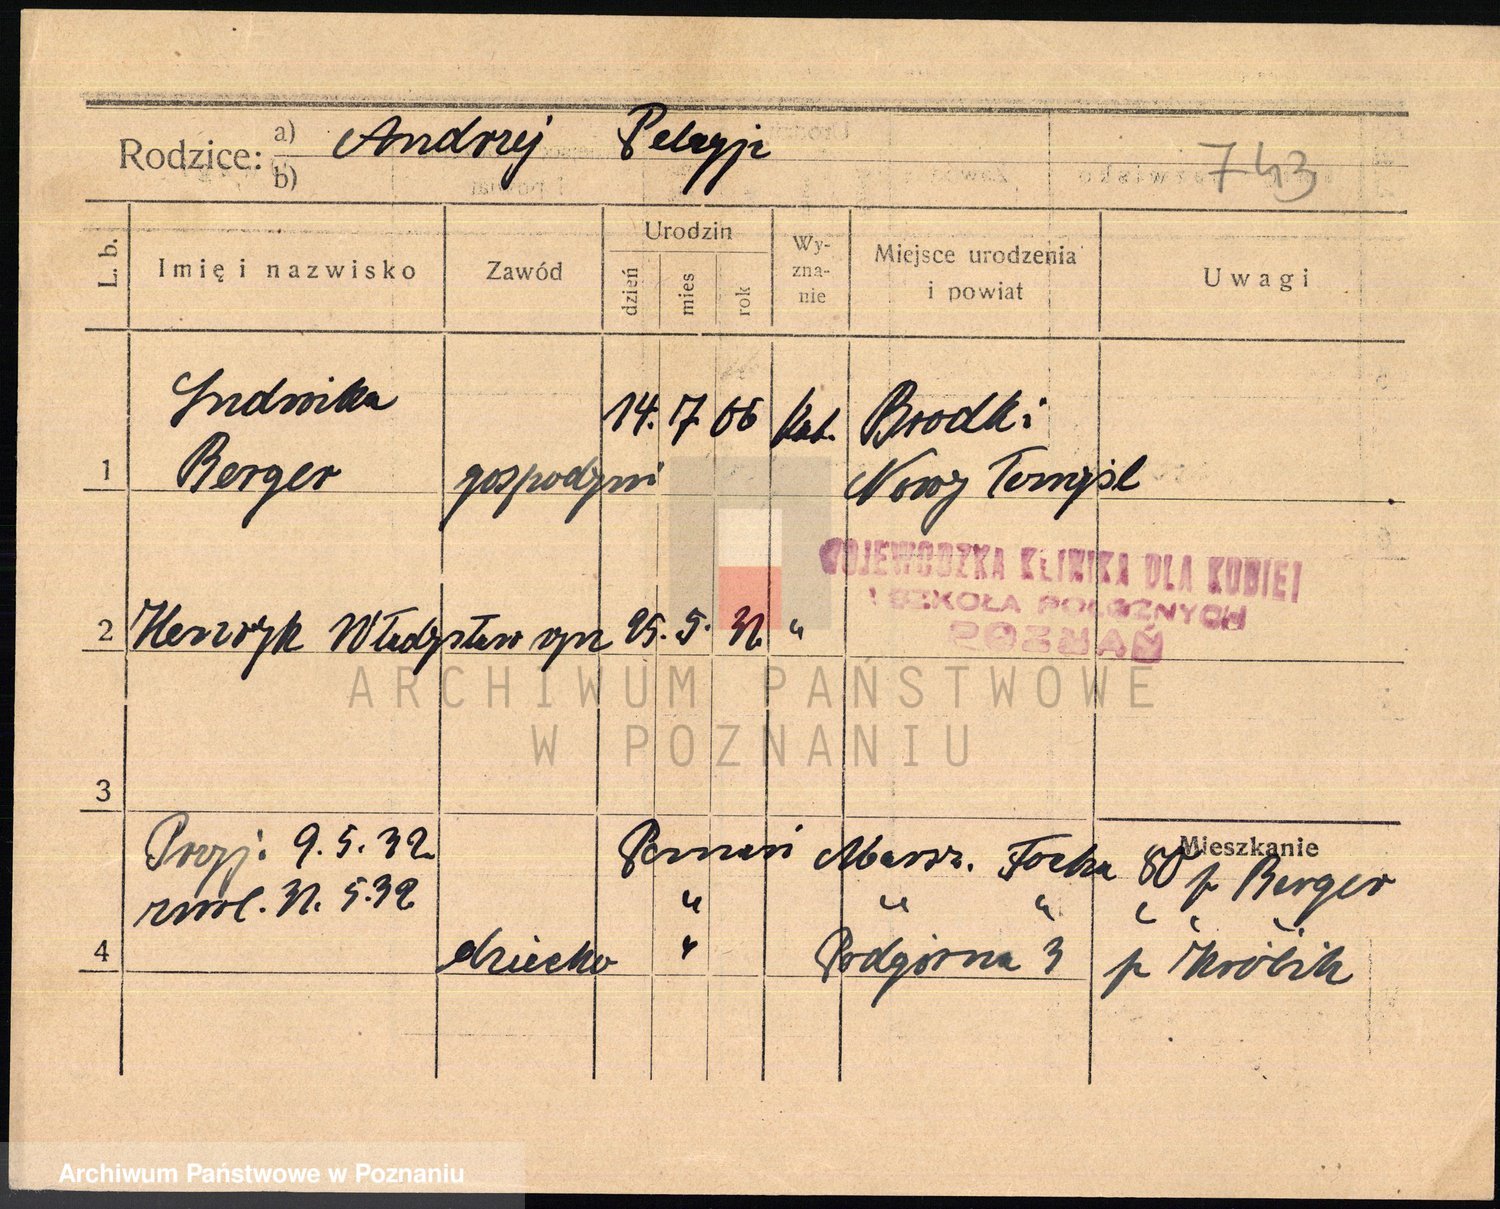 Rodzice: a) Andrzej Pelagja
b)
743
L. b. Imię i nazwisko Zawód Urodzin Wy-zna-nie Miejsce urodzenia i powiat Uwagi
dzień mies rok
Ludwika 14. 7. 06 kat. Brodki
1 Berger gospodyni Nowy Tomyśl
WOJEWÓDZKA KLINIKA DLA KOBIET
I SZKOŁA POŁOŻNYCH
POZNAŃ
2 Henryk Władysław syn 25. 5. 32 "
ARCHIWUM PAŃSTWOWE
W POZNANIU
3
Mieszkanie
Przyj. 9. 5. 32 Poznań Marsz. Focha 80 p Berger
zwol. 31. 5. 32 " " " " "
4 dziecko " Podgórna 3 p Królik
Archiwum Państwowe w Poznaniu